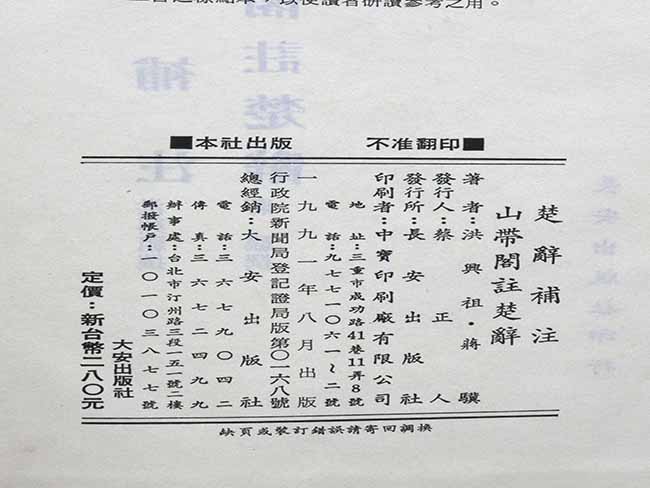 上古之標點本，以便讀者研讀參考之用。
■本社出版　　不准翻印■
楚辭補注
山帶閣註楚辭
著者：洪興祖・蔣驥
發行人：蔡正人
發行所：長安出版社
印刷者：中寶印刷廠有限公司
地址：三重市成功路41巷11弄8號
電話：九七七一〇〇六一～二號
一九九一年八月出版
行政院新聞局登記證局版第〇一六八號
總經銷：大安出版社
電話：三六七九〇四二
傳真：三六七二四九九
辦事處：台北市汀州路三段一五一號二樓
郵撥帳戶：一〇一〇三八七七號
大安出版社
定價：新台幣二八〇元
缺頁或裝訂錯誤請寄回調換